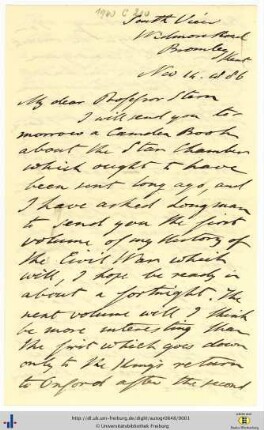 South View
Widmore Road
Bromley
Kent
Nov 14. 1886
My dear Professor Stern
I will send you to-
morrow a Camden Book
about the Star Chamber
which ought to have
been sent long ago, and
I have asked Longman
to send you the first
volume of my History of
the Civil War which
will, I hope be ready in
about a fortnight. The
next volume will I think
be more interesting than
the first which goes down
only to the King's return
to Oxford after the second
http://dl.ub.uni-freiburg.de/diglit/autogr0640/0001
© Universitätsbibliothek Freiburg